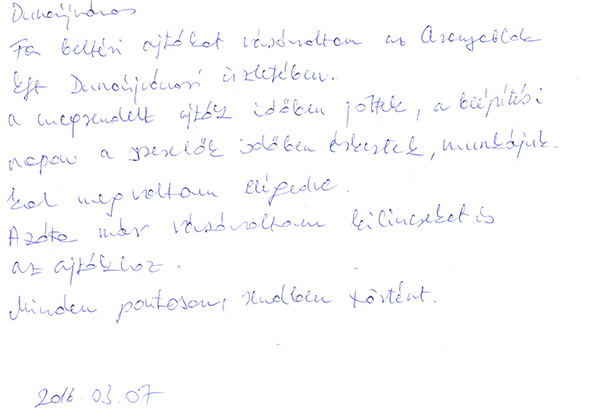 Dunaújváros
Fa beltéri ajtókat vásároltam az Aranyablak
Kft Dunaújvárosi üzletében.
a megrendelt ajtók időben jöttek, a beépítési
napon a szerelők időben érkeztek, munkájuk-
kal meg voltam elégedve.
Azóta már vásároltam kilincseket is
az ajtókhoz.
Minden pontosan, rendben történt.
2016.03.07